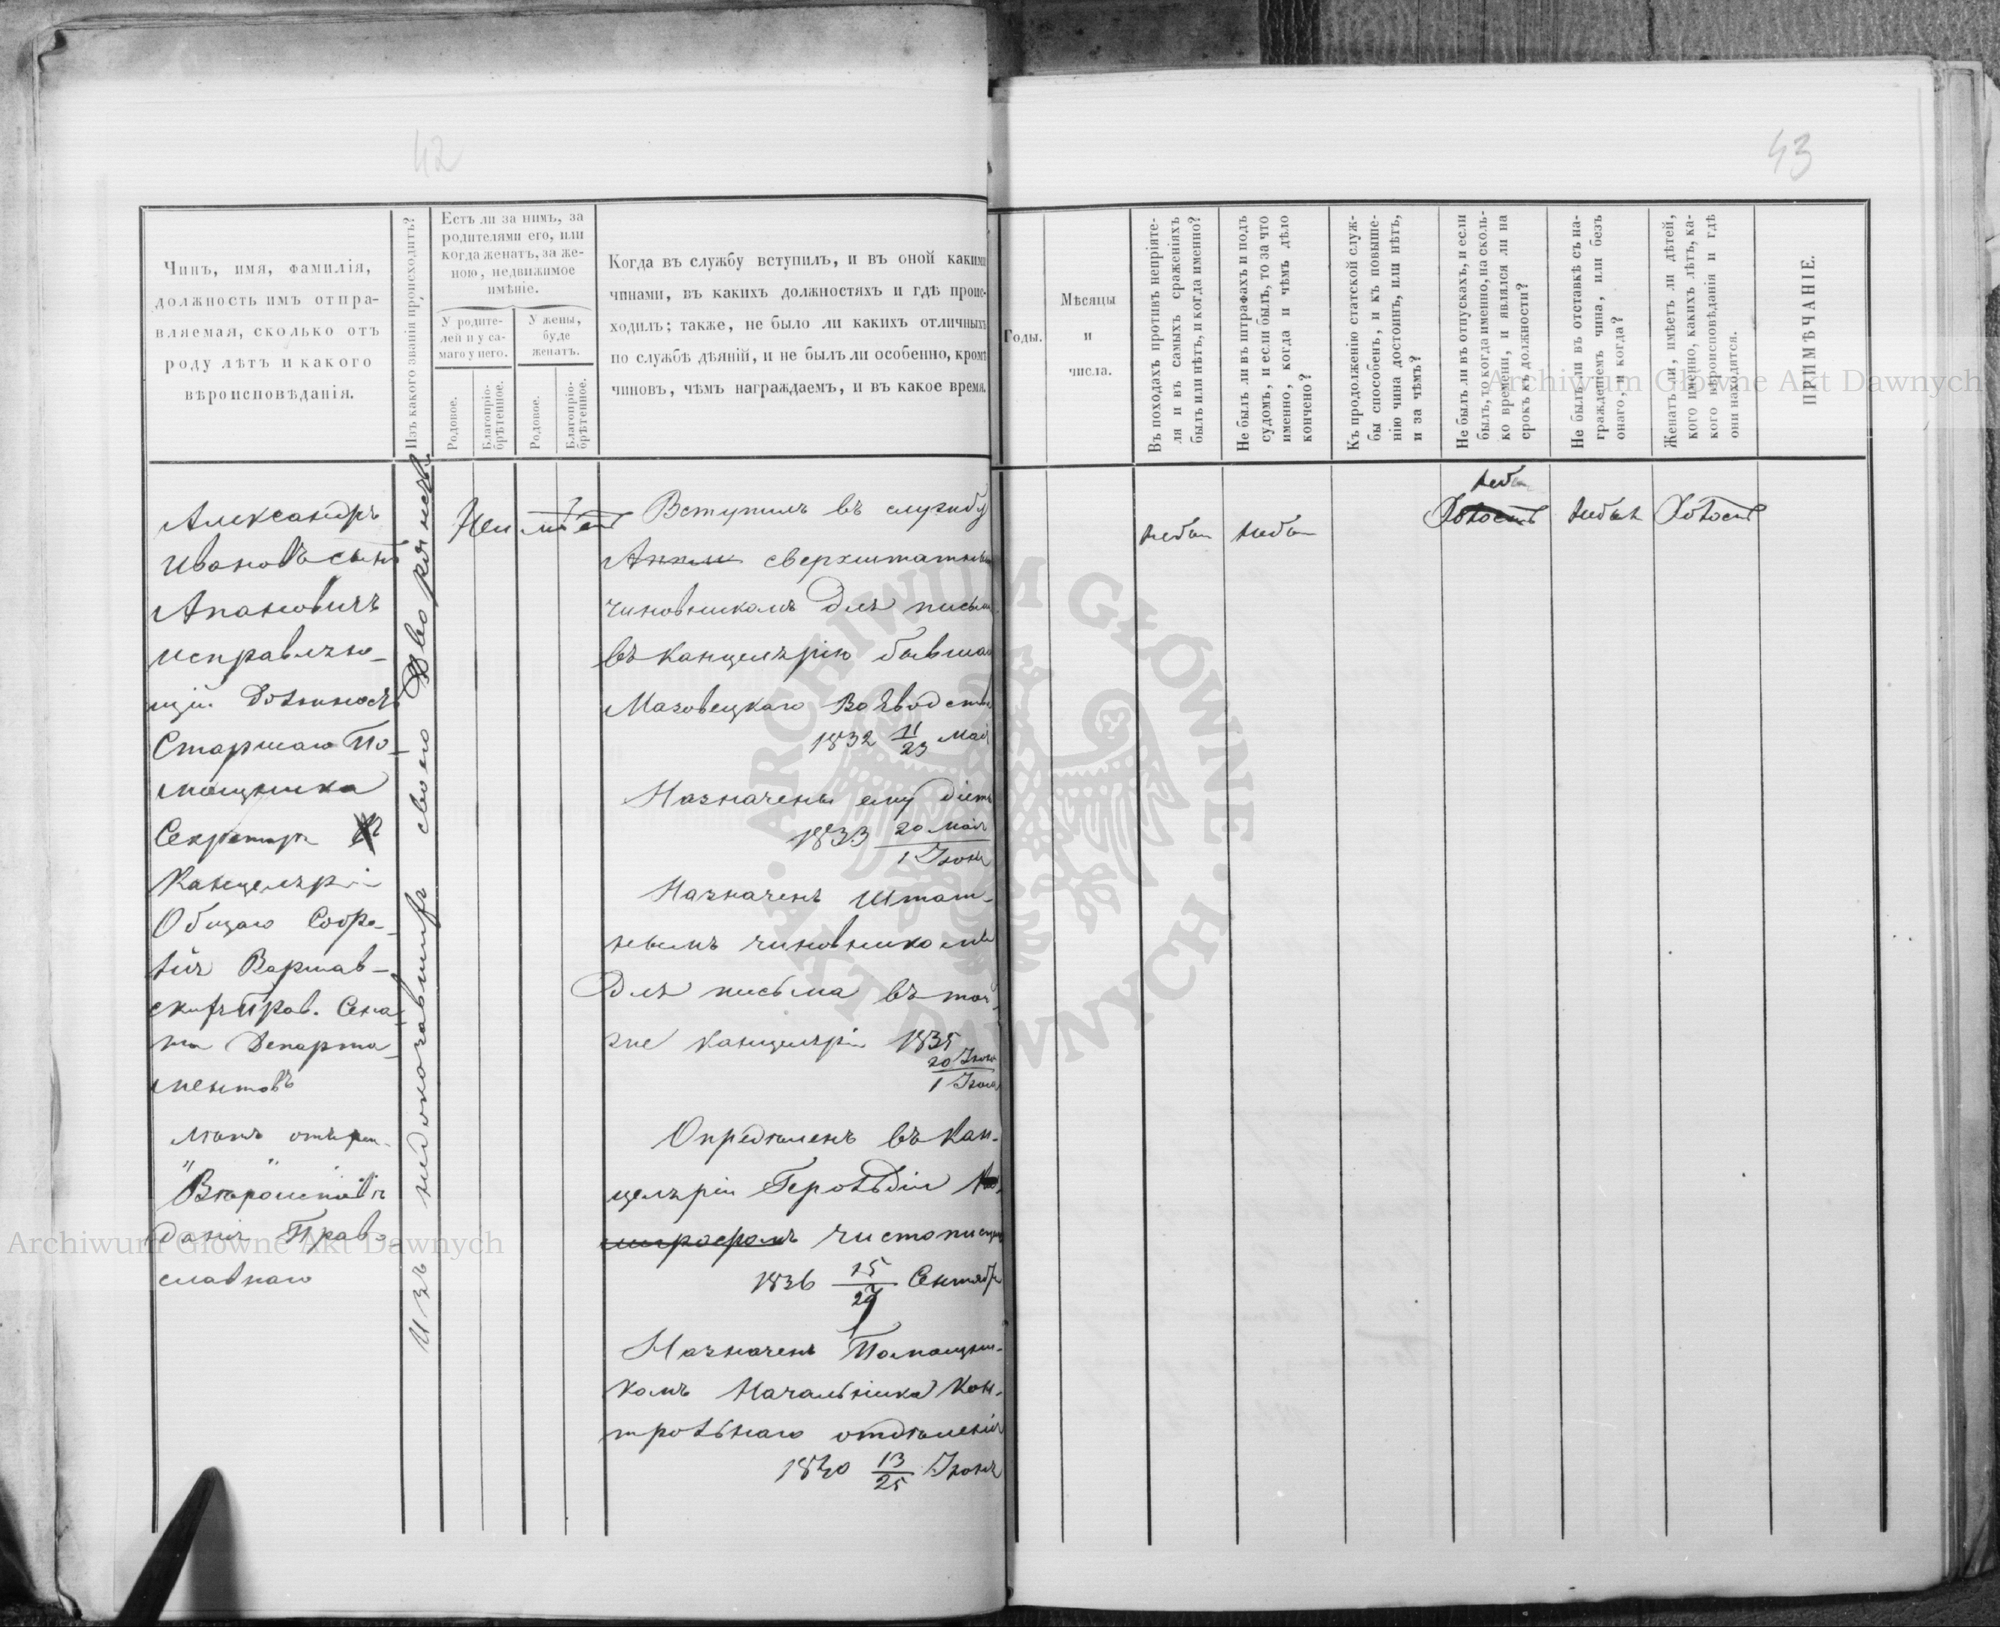 42
43
Чинъ, имя, фамилія,
должность имъ отпра-
вляемая, сколько отъ
роду лѣтъ и какого
вѣроисповѣданія.
Изъ какого званія происходитъ?
Есть ли за нимъ, за
родителями его, или
когда женатъ, за же-
ною, недвижимое
имѣніе.
У родите-
лей и у са-
маго у него.
У жены,
буде
женатъ.
Родовое.
Благопріо-
брѣтенное.
Родовое.
Благопріо-
брѣтенное.
Когда въ службу вступилъ, и въ оной какими
чинами, въ какихъ должностяхъ и гдѣ проис-
ходилъ; также, не было ли какихъ отличныхъ
по службѣ дѣяній, и не былъ ли особенно, кромѣ
чиновъ, чѣмъ награждаемъ, и въ какое время.
Годы.
Мѣсяцы
и
числа.
Въ походахъ противъ непріяте-
ля и въ самыхъ сраженіяхъ
былъ или нѣтъ, и когда именно?
Не былъ ли въ штрафахъ и подъ
судомъ, и если былъ, то за что
именно, когда и чѣмъ дѣло
кончено?
Къ продолженію статской служ-
бы способенъ, и къ повыше-
нію чина достоинъ, или нѣтъ,
и за чѣмъ?
Не былъ ли въ отпускахъ, и если
былъ, то когда именно, на сколь-
ко времени, и являлся ли на
срокъ къ должности?
Не былъ ли въ отставкѣ съ на-
гражденіемъ чина, или безъ
онаго, и когда?
Женатъ ли, имѣетъ ли дѣтей,
кого именно, какихъ лѣтъ, ка-
кого вѣроисповѣданія и гдѣ
они находятся.
ПРИМѢЧАНІЕ.
Александръ
Ивановъ сынъ
Апановичъ
исправляю-
щій Должность
Старшаго По-
мощника
Секретаря
Канцеляріи
Общаго Собра-
нія Варшав-
скихъ Прав. Сена-
та Департа-
ментовъ
лѣтъ отъ роду
Вѣроисповѣ-
данія Право-
славнаго
Изъ недоказавшихъ своего Дворянства
Не имѣетъ
Вступилъ въ службу
сверхштатнымъ
чиновникомъ Для письма
въ Канцелярію бывшаго
Мазовецкаго Воеводства
1832 11/23 Мая
Назначены ему діеты
1833 20 Мая/1 Іюня
Назначенъ Штат-
нымъ чиновникомъ
Для письма въ той-
же Канцеляріи 1835
20 Іюня/1 Іюля
Опредѣленъ въ Кан-
целярію Герольдіи
чистописцемъ
1836 15/27 Сентября
Назначенъ Помощни-
комъ Начальника Кон-
трольнаго отдѣленія
1840 13/25 Іюня
небылъ
небылъ
небылъ
Холостъ
небылъ
Холостъ
ARCHIWUM GŁÓWNE AKT DAWNYCH
Archiwum Główne Akt Dawnych
Archiwum Główne Akt Dawnych